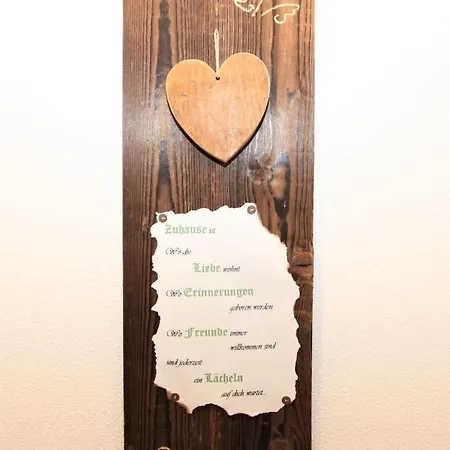 Zuhause ist
Wo die
Liebe wohnt
Wo Erinnerungen
geboren werden
Wo Freunde immer
willkommen sind
und jederzeit
ein Lächeln
auf dich wartet...